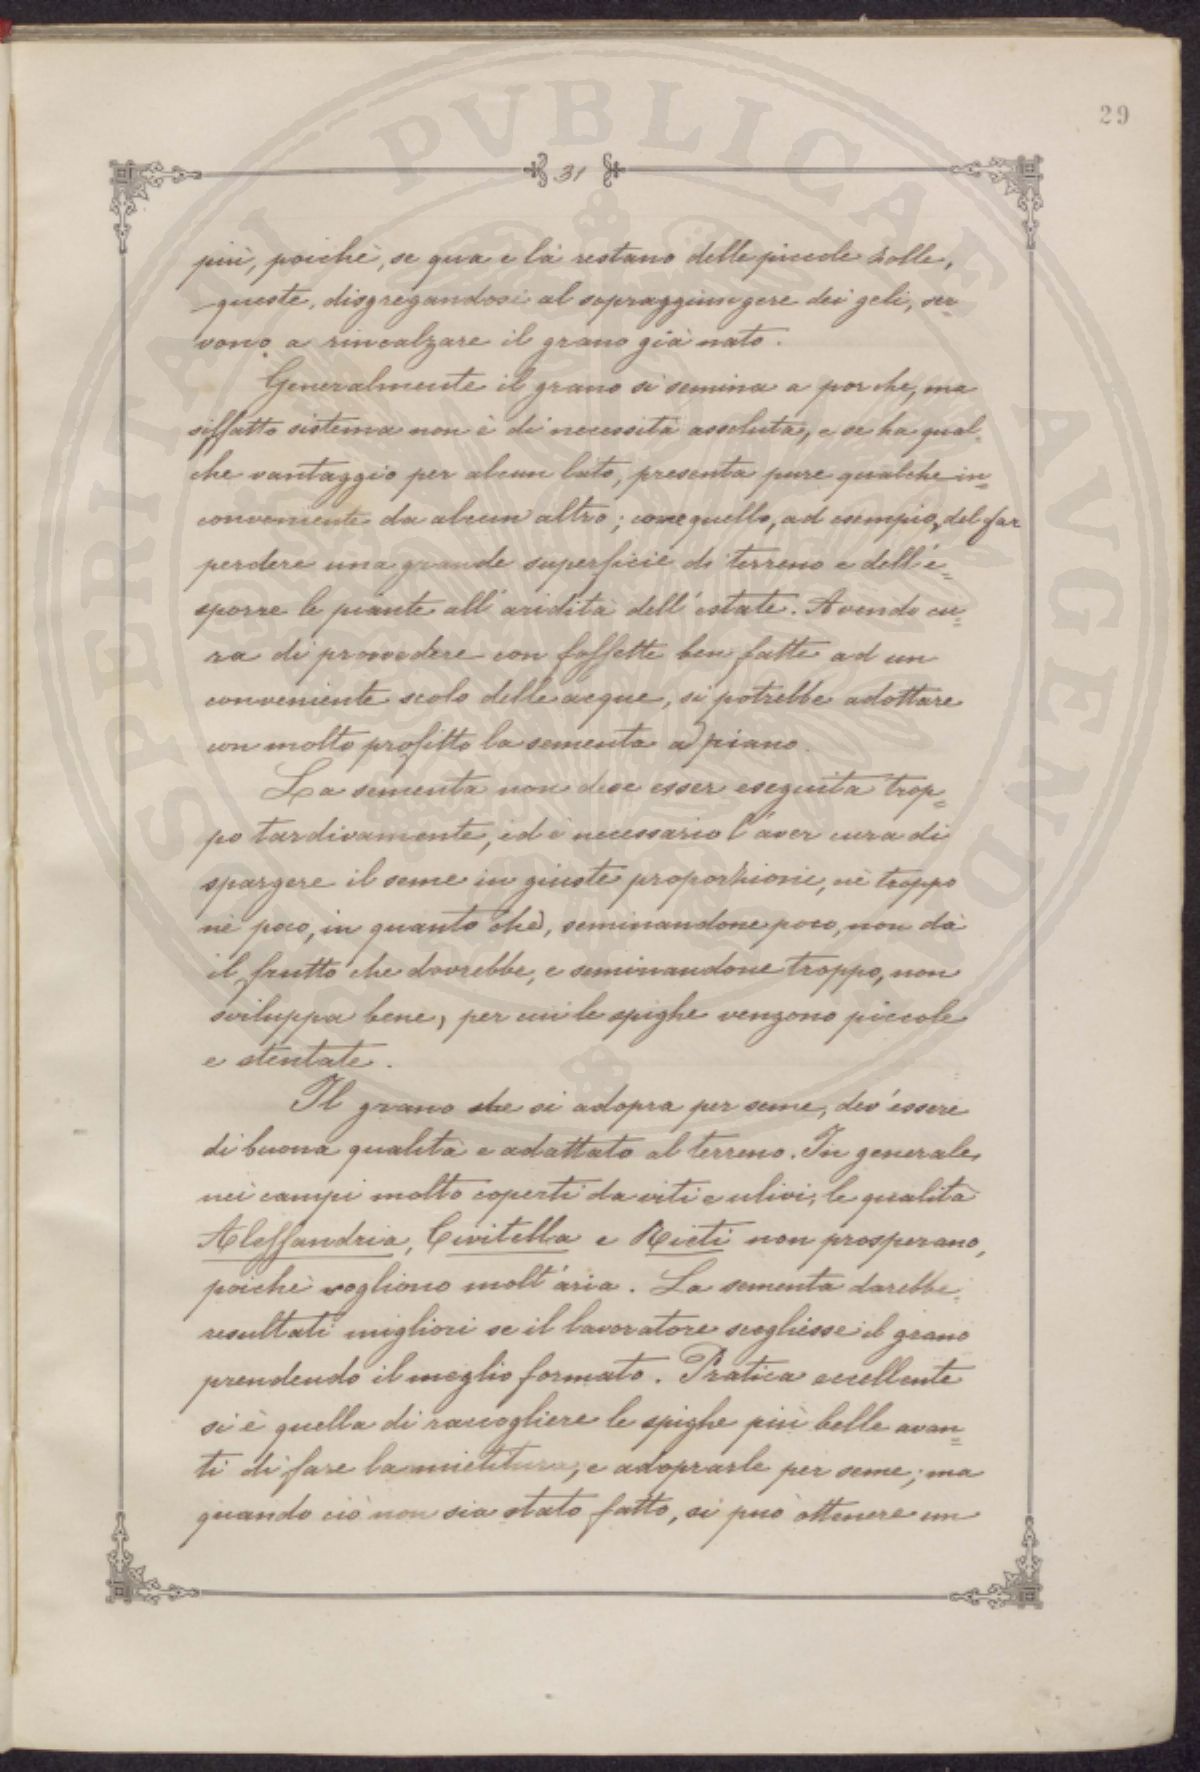 29
31
più, poichè, se qua e là restano delle piccole zolle,
queste, disgregandosi al sopraggiungere dei geli, ser=
vono a rincalzare il grano già nato.
Generalmente il grano si semina a porche, ma
siffatto sistema non è di necessità assoluta, e se ha qual=
che vantaggio per alcun lato, presenta pure qualche in=
conveniente da alcun altro; come quello, ad esempio, del far
perdere una grande superficie di terreno e dell'e=
sporre le piante all'aridità dell'estate. Avendo cu=
ra di provvedere con fossette ben fatte ad un
conveniente scolo delle acque, si potrebbe adottare
con molto profitto la sementa a piano.
La sementa non deve esser eseguita trop=
po tardivamente, ed è necessario l'aver cura di
spargere il seme in giuste proporzioni, nè troppo
nè poco, in quanto che, seminandone poco, non dà
il frutto che dovrebbe, e seminandone troppo, non
sviluppa bene, per cui le spighe vengono piccole
e stentate.
Il grano che si adopra per seme, dev'essere
di buona qualità e adattato al terreno. In generale,
nei campi molto coperti da viti e ulivi, le qualità
Alessandria, Civitella e Rieti non prosperano,
poichè vogliono molt'aria. La sementa darebbe
resultati migliori se il lavoratore scogliesse il grano
prendendo il meglio formato. Pratica eccellente
si è quella di raccogliere le spighe più belle avan=
ti di fare la mietitura, e adoprarle per seme; ma
quando ciò non sia stato fatto, si può ottenere un
SPERITAI PVBLICAE AVGENDA